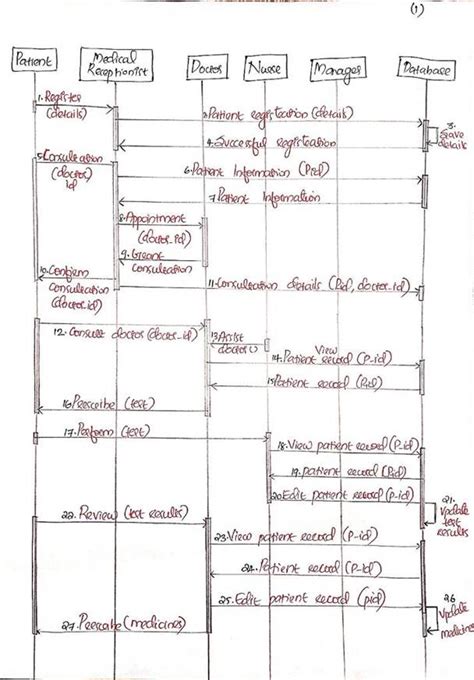 (1)
Patient
Medical Receptionist
Doctor
Nurse
Manager
Database
1.Register
(details)
2.Patient registration (details)
3.
Save
details
4.Successful registration
5.Consultation
(doctor)
id
6.Patient Information (Pid)
7.Patient Information
8.Appointment
(doctor_id)
9.Grant
consultation
10.Confirm
consultation
(doctor_id)
11.Consultation details (Pid, doctor_id)
12.Consult doctor (doctor_id)
13.Assist
doctor()
View
14.Patient record (P-id)
15.Patient record (Pid)
16.Prescribe (test)
17.Perform (test)
18.View patient record (P-id)
19.patient record (Pid)
20.Edit patient record (P-id)
21.
Update
test
results
22.Review (test results)
23.View patient record (P-id)
24.Patient record (P-id)
25.Edit patient record (pid)
26
Update
medicines
27.Prescribe (medicines)